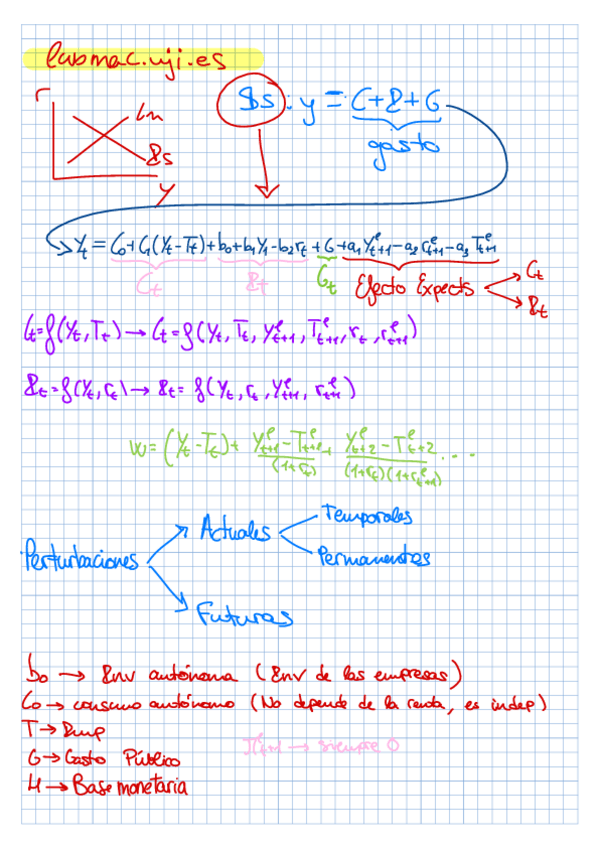 labmac.uji.es
r
IS: y = C+I+G
Lm
Is
gasto
Y
Yt = C0+C1(Yt-Tt)+b0+b1Yt-b2rt+G+a1Y^e_t+1-a2r^e_t+1-a3T^e_t+1
Ct It Gt Efecto Expects Ct It
Ct=f(Yt,Tt) → Ct=f(Yt,Tt,Y^e_t+1,T^e_t+1,rt,r^e_t+1)
It=f(Yt,rt) → It=f(Yt,rt,Y^e_t+1,r^e_t+1)
W=(Yt-Tt)+ (Y^e_t+1-T^e_t+1)/(1+rt) + (Y^e_t+2-T^e_t+2)/((1+rt)(1+r^e_t+1)) ...
Temporales
Actuales
Perturbaciones
Permanentes
Futuras
b0 → Inv autónoma (Inv de las empresas)
C0 → consumo autónomo (No depende de la renta, es indep)
T → Imp
π^e_t+1 → siempre 0
G → Gasto Público
H → Base monetaria